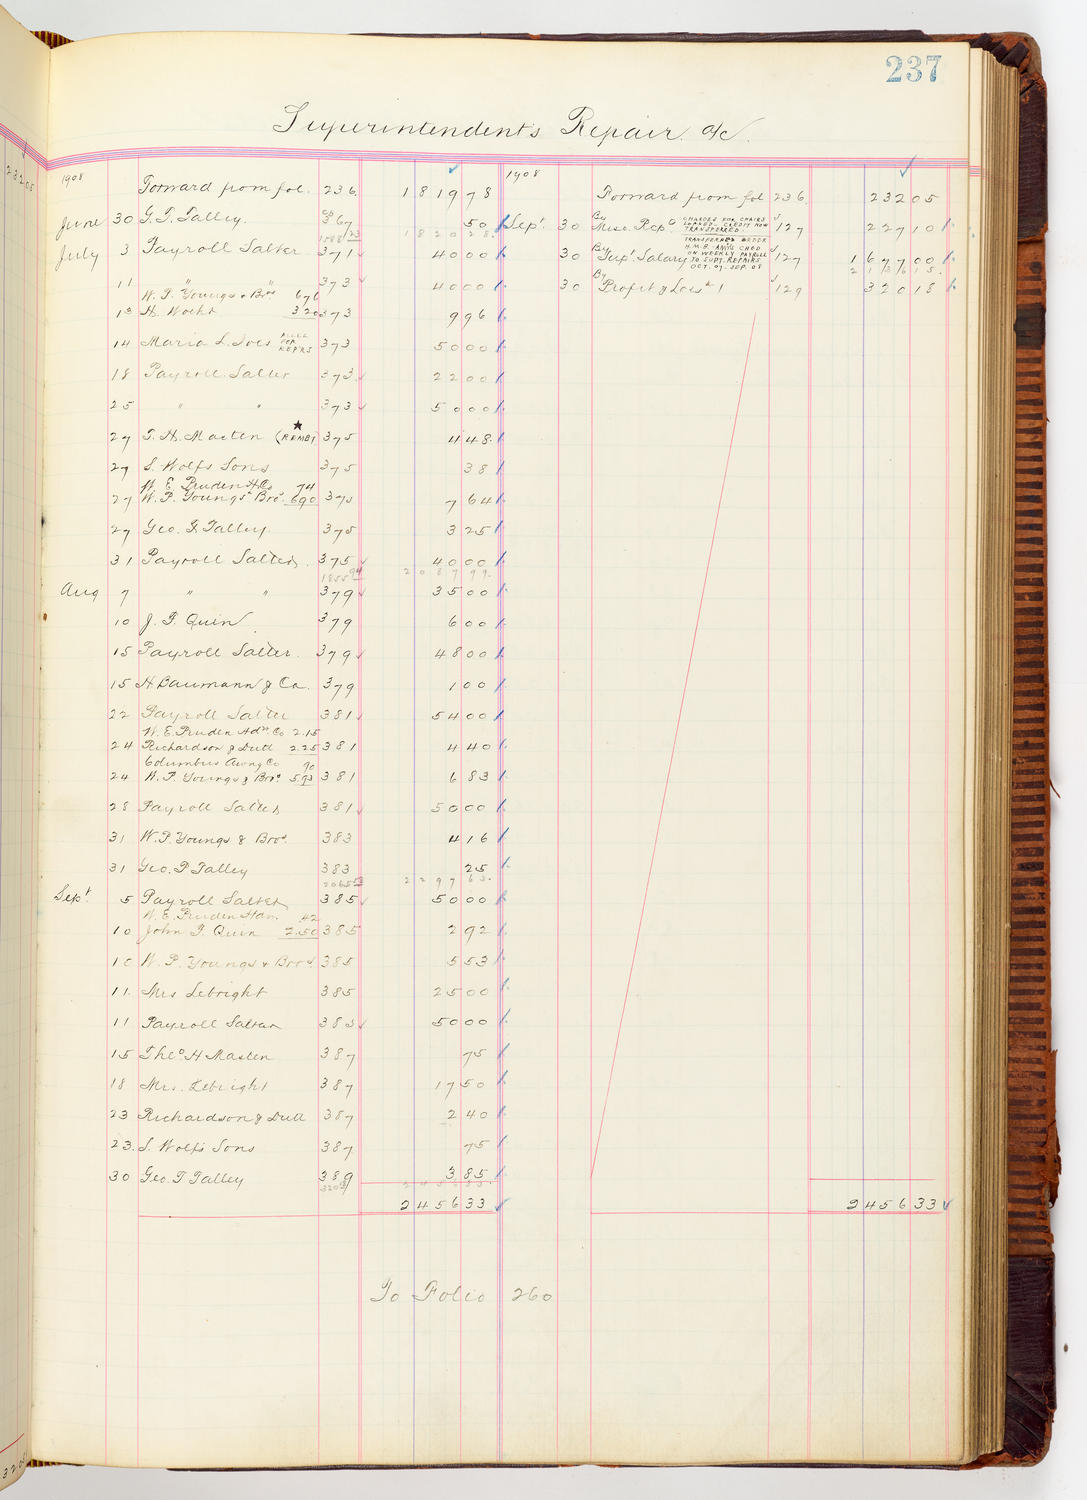 237
Superintendent's Repair a/c
1908
Forward from fol. 236. 1819 78
June 30 G. T. Talley. 367 50
1820 28
July 3 Payroll Salter 371 40 00
11 " " 373 40 00
W. P. Youngs & Bros 676
13 H. Wocht 320 373 9 96
14 Maria L. Ives 373 50 00
18 Payroll Salter 373 22 00
25 " " 373 50 00
27 T. H. Masten (REMBT 375 4 48
27 S. Wolfs Sons 375 38
W. E. Pruden H. Co 74
27 W. P. Youngs & Bros. 690 375 7 64
27 Geo. T. Talley 375 3 25
31 Payroll Salter 375 40 00
2087 99
Aug 7 " " 379 35 00
10 J. P. Quin 379 6 00
15 Payroll Salter. 379 48 00
15 H Baumann & Co. 379 1 00
22 Payroll Salter 381 54 00
W. E. Pruden Hdw. Co 2.15
24 Richardson & Dutt 2.25 381 4 40
Columbus Awng Co 90
24 W. P. Youngs & Bros 593 381 6 83
28 Payroll Salter 381 50 00
31 W. P. Youngs & Bros. 383 4 16
31 Geo. T Talley 383 25
2297 63
Sept. 5 Payroll Salter 385 50 00
W. E. Pruden Hdw. 42
10 John P. Quin 2.50 385 2 92
10 W. P. Youngs & Bros. 385 5 53
11. Mrs Lebright 385 25 00
11 Payroll Salter 385 50 00
15 Theo H Masten 387 75
18 Mrs. Lebright 387 17 50
23 Richardson & Dutt 387 2 40
23. S. Wolfs Sons 387 75
30 Geo. T Talley 389 3 85
2456 33
To Folio 260
1908
Forward from fol 236. 232 05
Sept. 30 By Misc. Recp CHARGES FOR CHAIRS LOANED. CREDIT NOW TRANSFERRED. 127 227 10
30 By Supt. Salary TRANSFERRED ORDER H.M.B. AMTS CHGD ON WEEKLY PAYROLL TO SUPT. REPAIRS OCT. 07 - SEP. 08 127 1677 00
2136 15
30 By Profit & Loss 1 129 320 18
2456 33